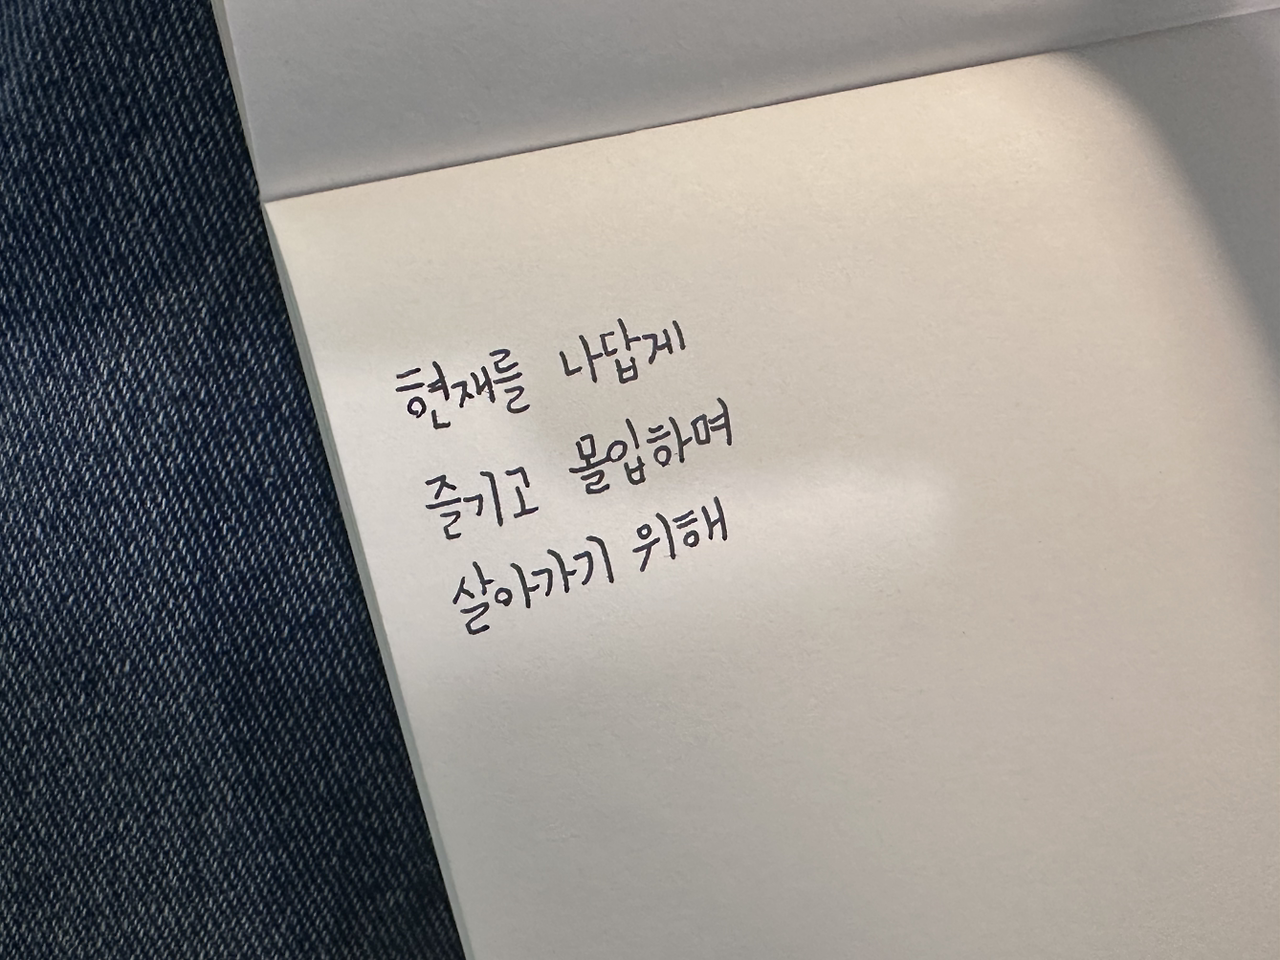 현재를 나답게
즐기고 몰입하며
살아가기 위해